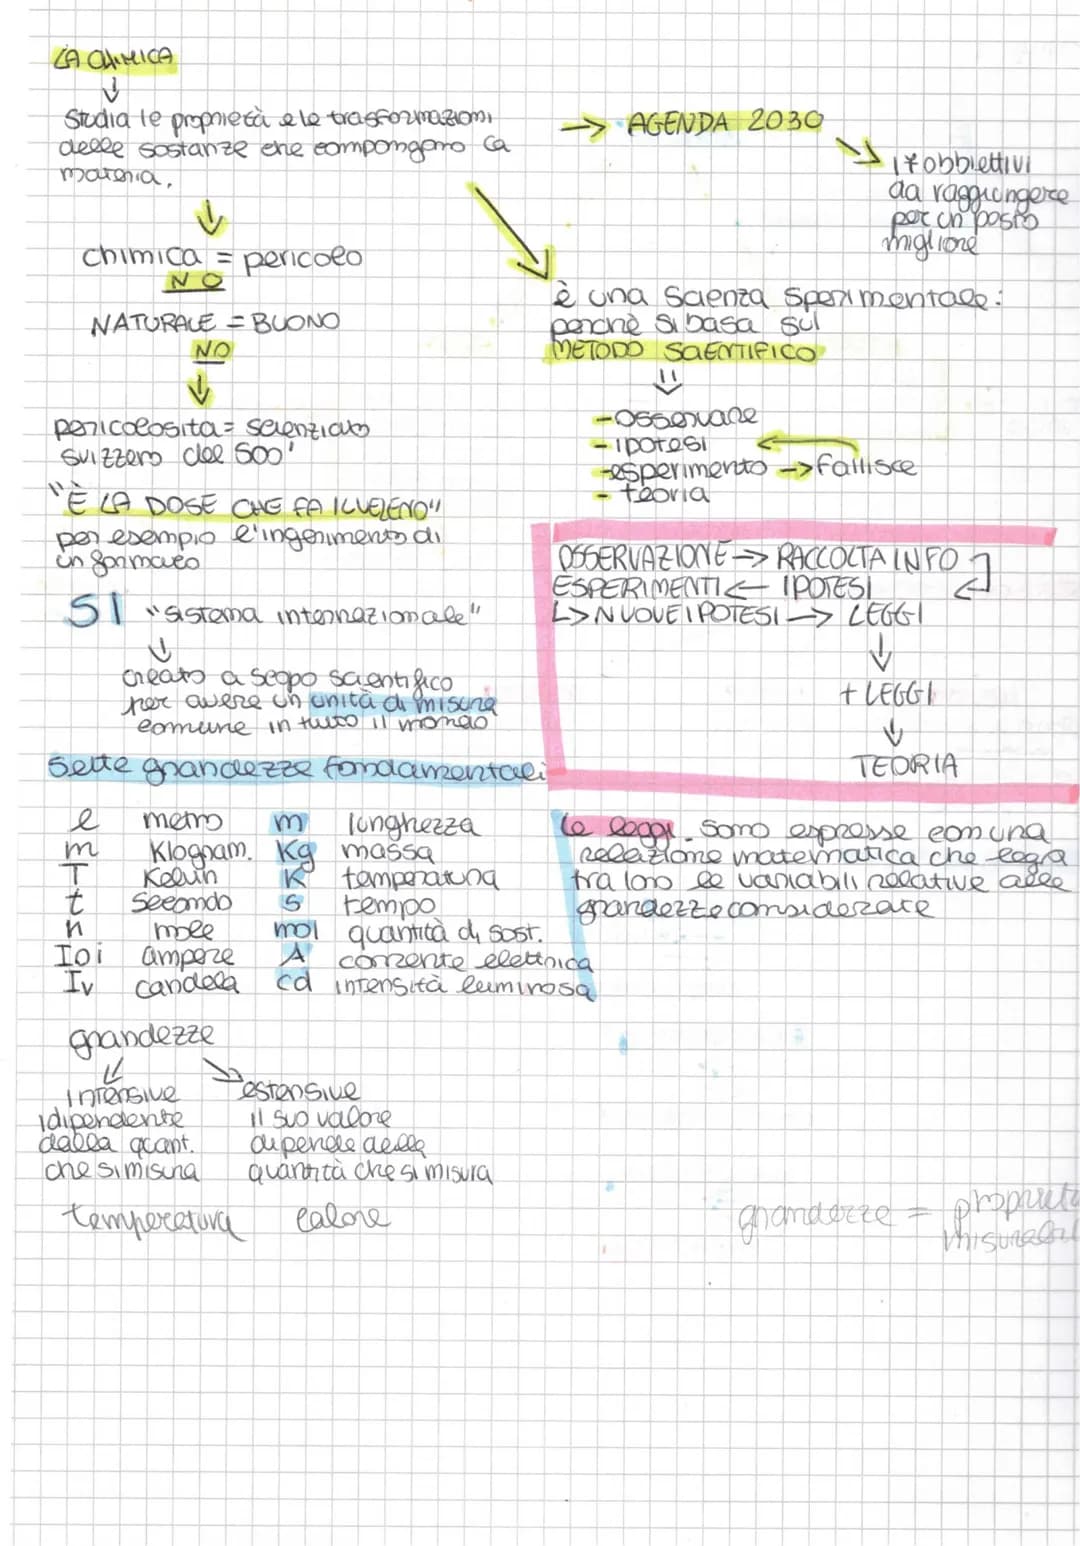 LA CHIMICA
Studia le proprietà e le trasformazioni
delle sostanze che compongono la
materia.
→ AGENDA 2030
17 obbiettivi
da raggiungere
per un posto
migliore
chimica = pericolo
NO
NATURALE = BUONO
NO
è una scienza sperimentale:
perchè si basa sul
METODO SCIENTIFICO
- osservare
- ipotesi
- esperimento → fallisce
- teoria
pericolosita = scienziato
svizzero del 500'
"È LA DOSE CHE FA IL VELENO"
per esempio l'ingerimento di
un farmaco
OSSERVAZIONE → RACCOLTA INFO
ESPERIMENTI ← IPOTESI
↳ NUOVE IPOTESI → LEGGI
+ LEGGI
TEORIA
SI "sistema internazionale"
creato a scopo scientifico
per avere un unità di misura
comune in tutto il mondo
Sette grandezze fondamentali
l metro m lunghezza
m Klogram. Kg massa
T Kelvin K temperatura
t Secondo s tempo
n mole mol quantità di sost.
I o i ampere A corrente elettrica
Iv candela cd intensità luminosa
le leggi sono espresse con una
relazione matematica che lega
tra loro le variabili relative alle
grandezze considerate
grandezze
intensive
idipendente
dalla quant.
che si misura
temperatura
estensive
il suo valore
dipende dalla
quantità che si misura
calore
grandezze = proprietà
misurabil